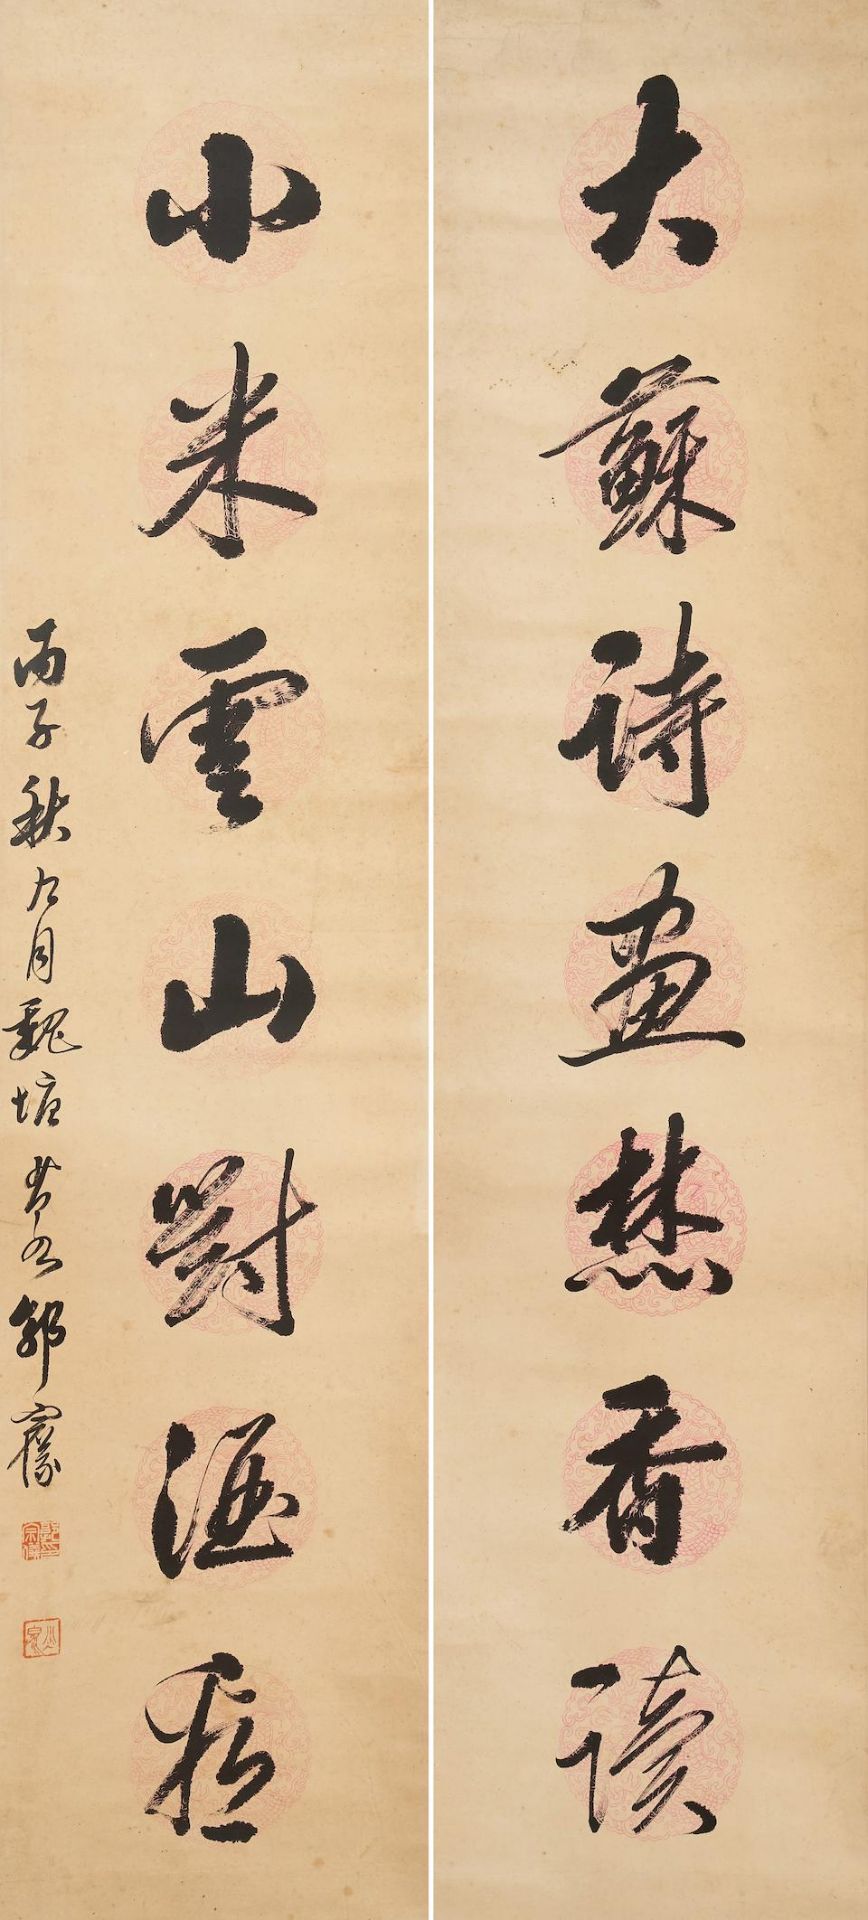 大蘇詩畫焚香讀
小米雲山對酒看
丙子秋九月魏塘郭